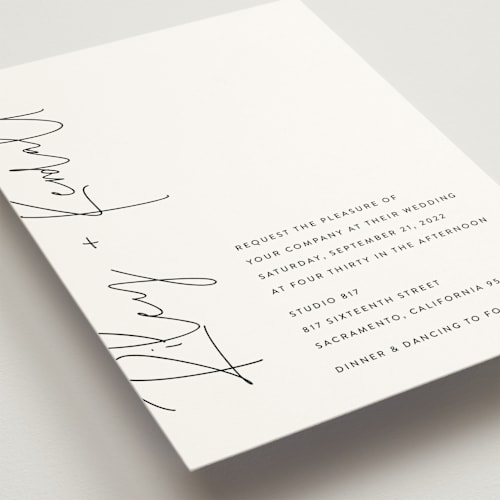 Riley
+
Kendall
REQUEST THE PLEASURE OF
YOUR COMPANY AT THEIR WEDDING
SATURDAY, SEPTEMBER 21, 2022
AT FOUR THIRTY IN THE AFTERNOON
STUDIO 817
817 SIXTEENTH STREET
SACRAMENTO, CALIFORNIA 95
DINNER & DANCING TO FO